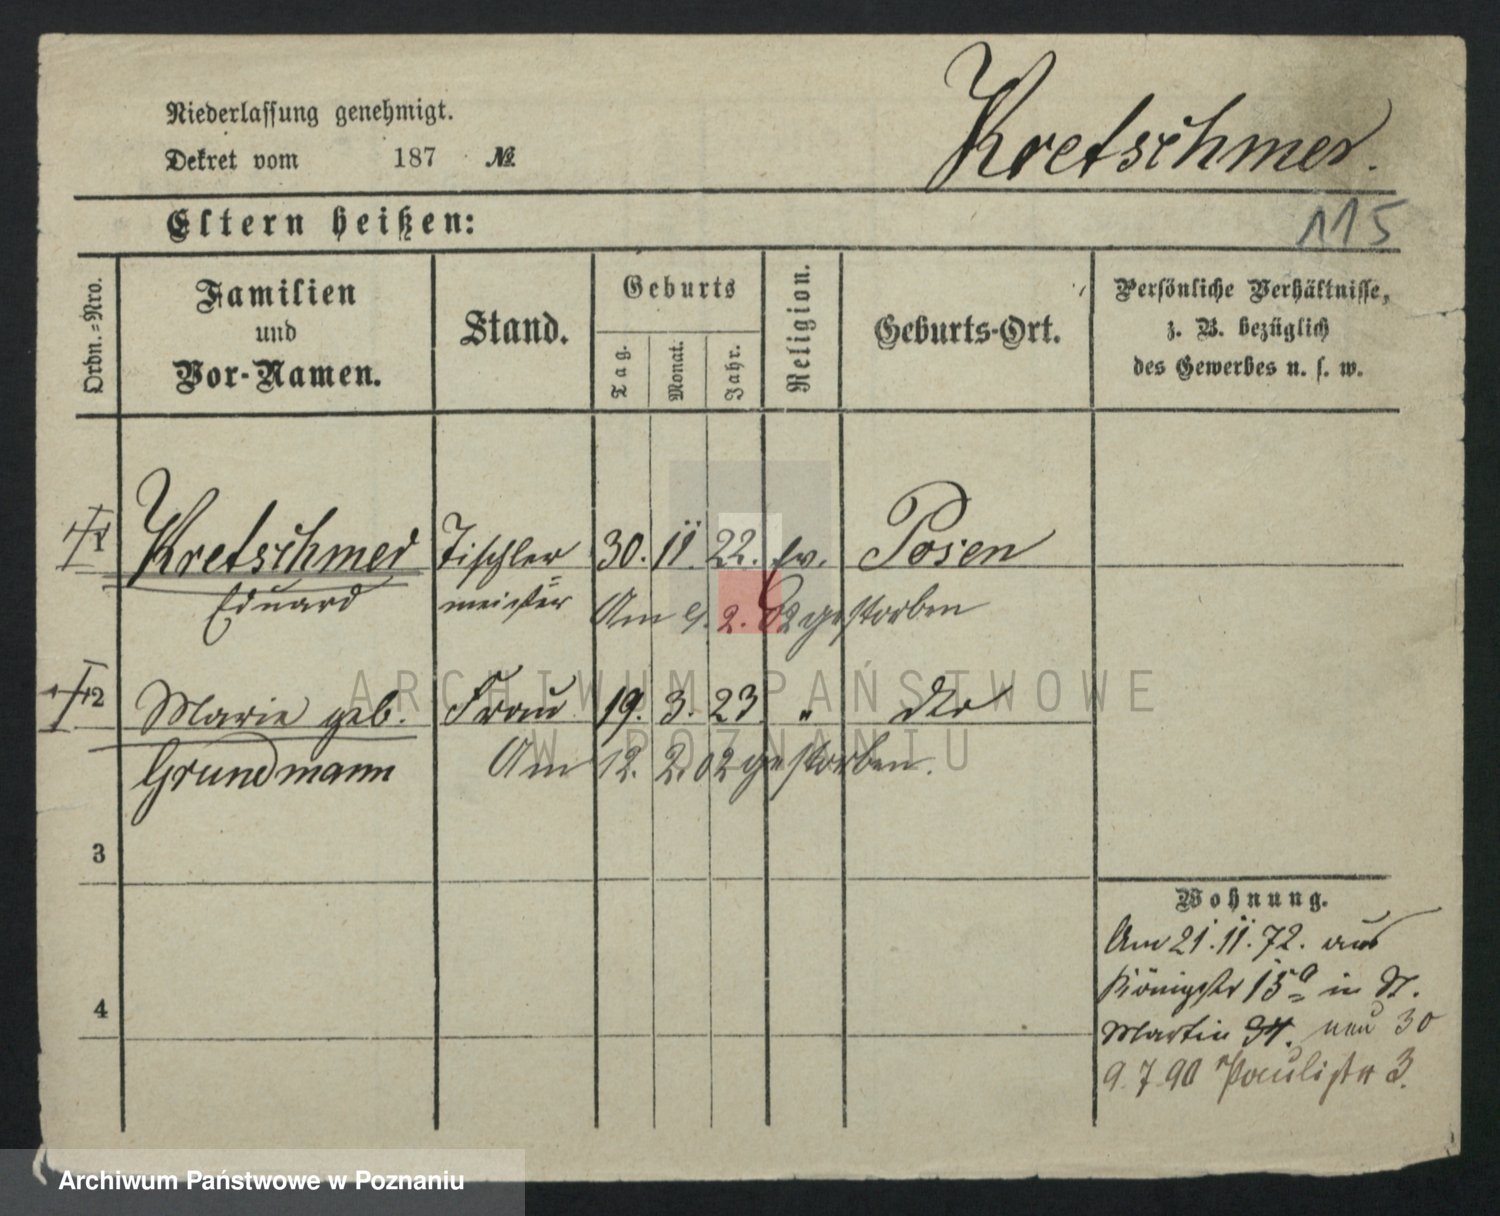 Niederlassung genehmigt.
Dekret vom 187 №
Kretschmer.
115
Eltern heißen:
Ordn.-Nro.
Familien und Vor-Namen.
Stand.
Geburts
Tag.
Monat.
Jahr.
Religion.
Geburts-Ort.
Persönliche Verhältnisse,
z. B. bezüglich
des Gewerbes u. s. w.
1 Kretschmer Tischler 30. 11. 22. ev. Posen
Eduard meister Am 9. 2. 02 gestorben
ARCHIWUM PAŃSTWOWE
W POZNANIU
2 Marie geb. Frau 19. 3. 23 " dto
Grundmann Am 12. 2. 02 gestorben.
3
4
Wohnung.
Am 21. 11. 72. aus
Königstr 15a in St.
Martin 34. neu 30
9. 7. 90 Paulistr 3.
Archiwum Państwowe w Poznaniu